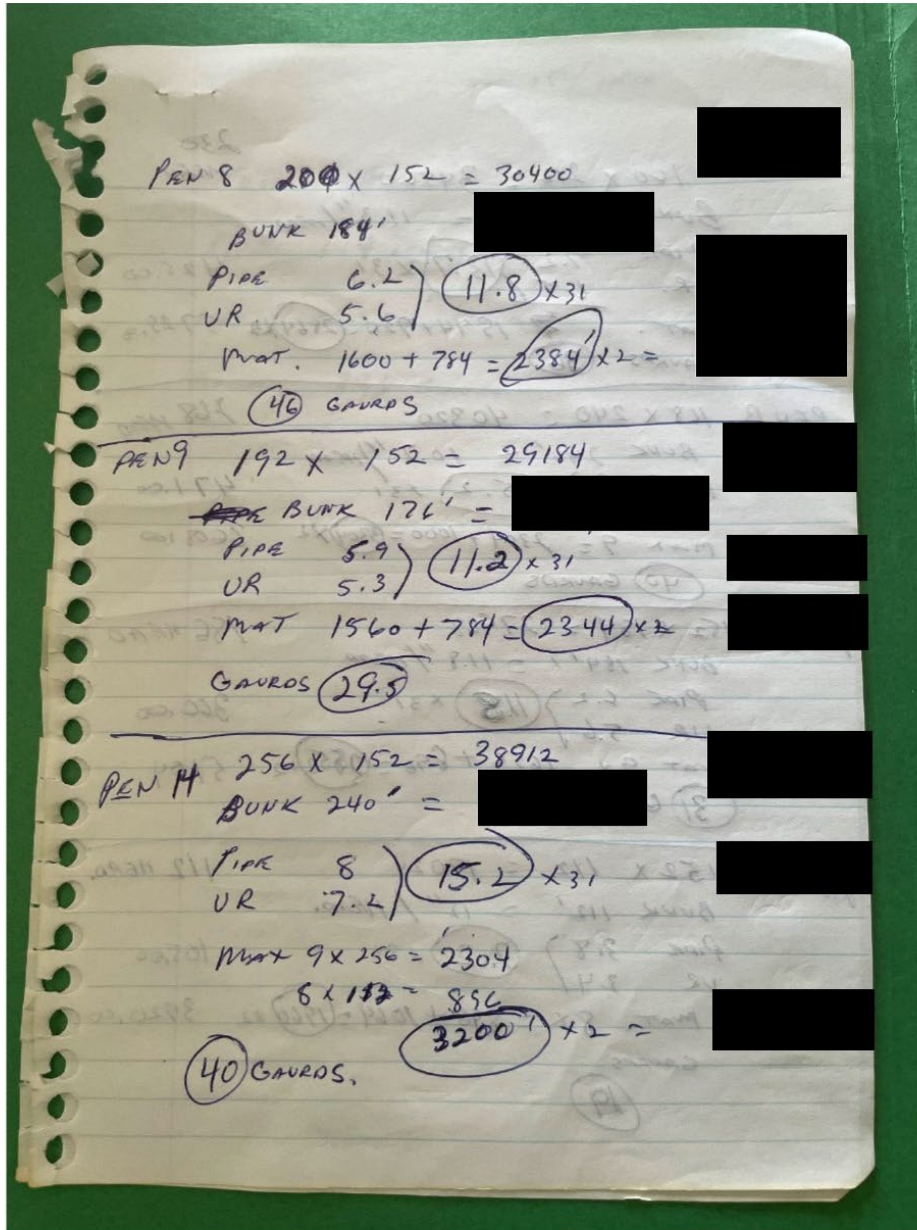 PEN 8 200 x 152 = 30400
BUNK 184'
PIPE 6.2
11.8 x 31
UR 5.6
MAT. 1600 + 784 = 2384' x 2 =
46 GAURDS
PEN 9 192 x 152 = 29184
BUNK 176' =
PIPE 5.9
11.2 x 31
UR 5.3
MAT 1560 + 784 = 2344 x 2
GAURDS 29.5
PEN 14 256 x 152 = 38912
BUNK 240' =
PIPE 8
15.2 x 31
UR 7.2
MAT 9 x 256 = 2304
8 x 112 = 896
3200' x 2 =
40 GAURDS.